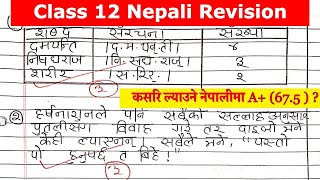 Class 12 Nepali Revision
शब्द संरचना संख्या
दमयन्ती |द.म.यन्.ती| ४
निषधराज |नि.सध्.राज्| ३
शरीर |स.रिर्| २
कसरि ल्याउने नेपालीमा A+ (67.5 ) ?
२ हर्षनाथले पनि सबैको सल्लाह अनुसार
पुतलीसंग विवाह गरे तर दाइजो भने
केही ल्याएनन् सबैले भने, "यस्तो
पो हुनुपर्छ त बिहे !"